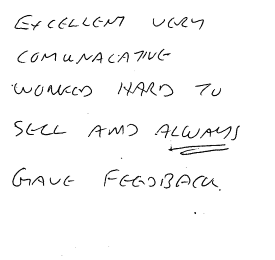 EXCELLENT VERY
COMUNACATIVE
WORKED HARD TO
SELL AND ALWAYS
GAVE FEEDBACK.